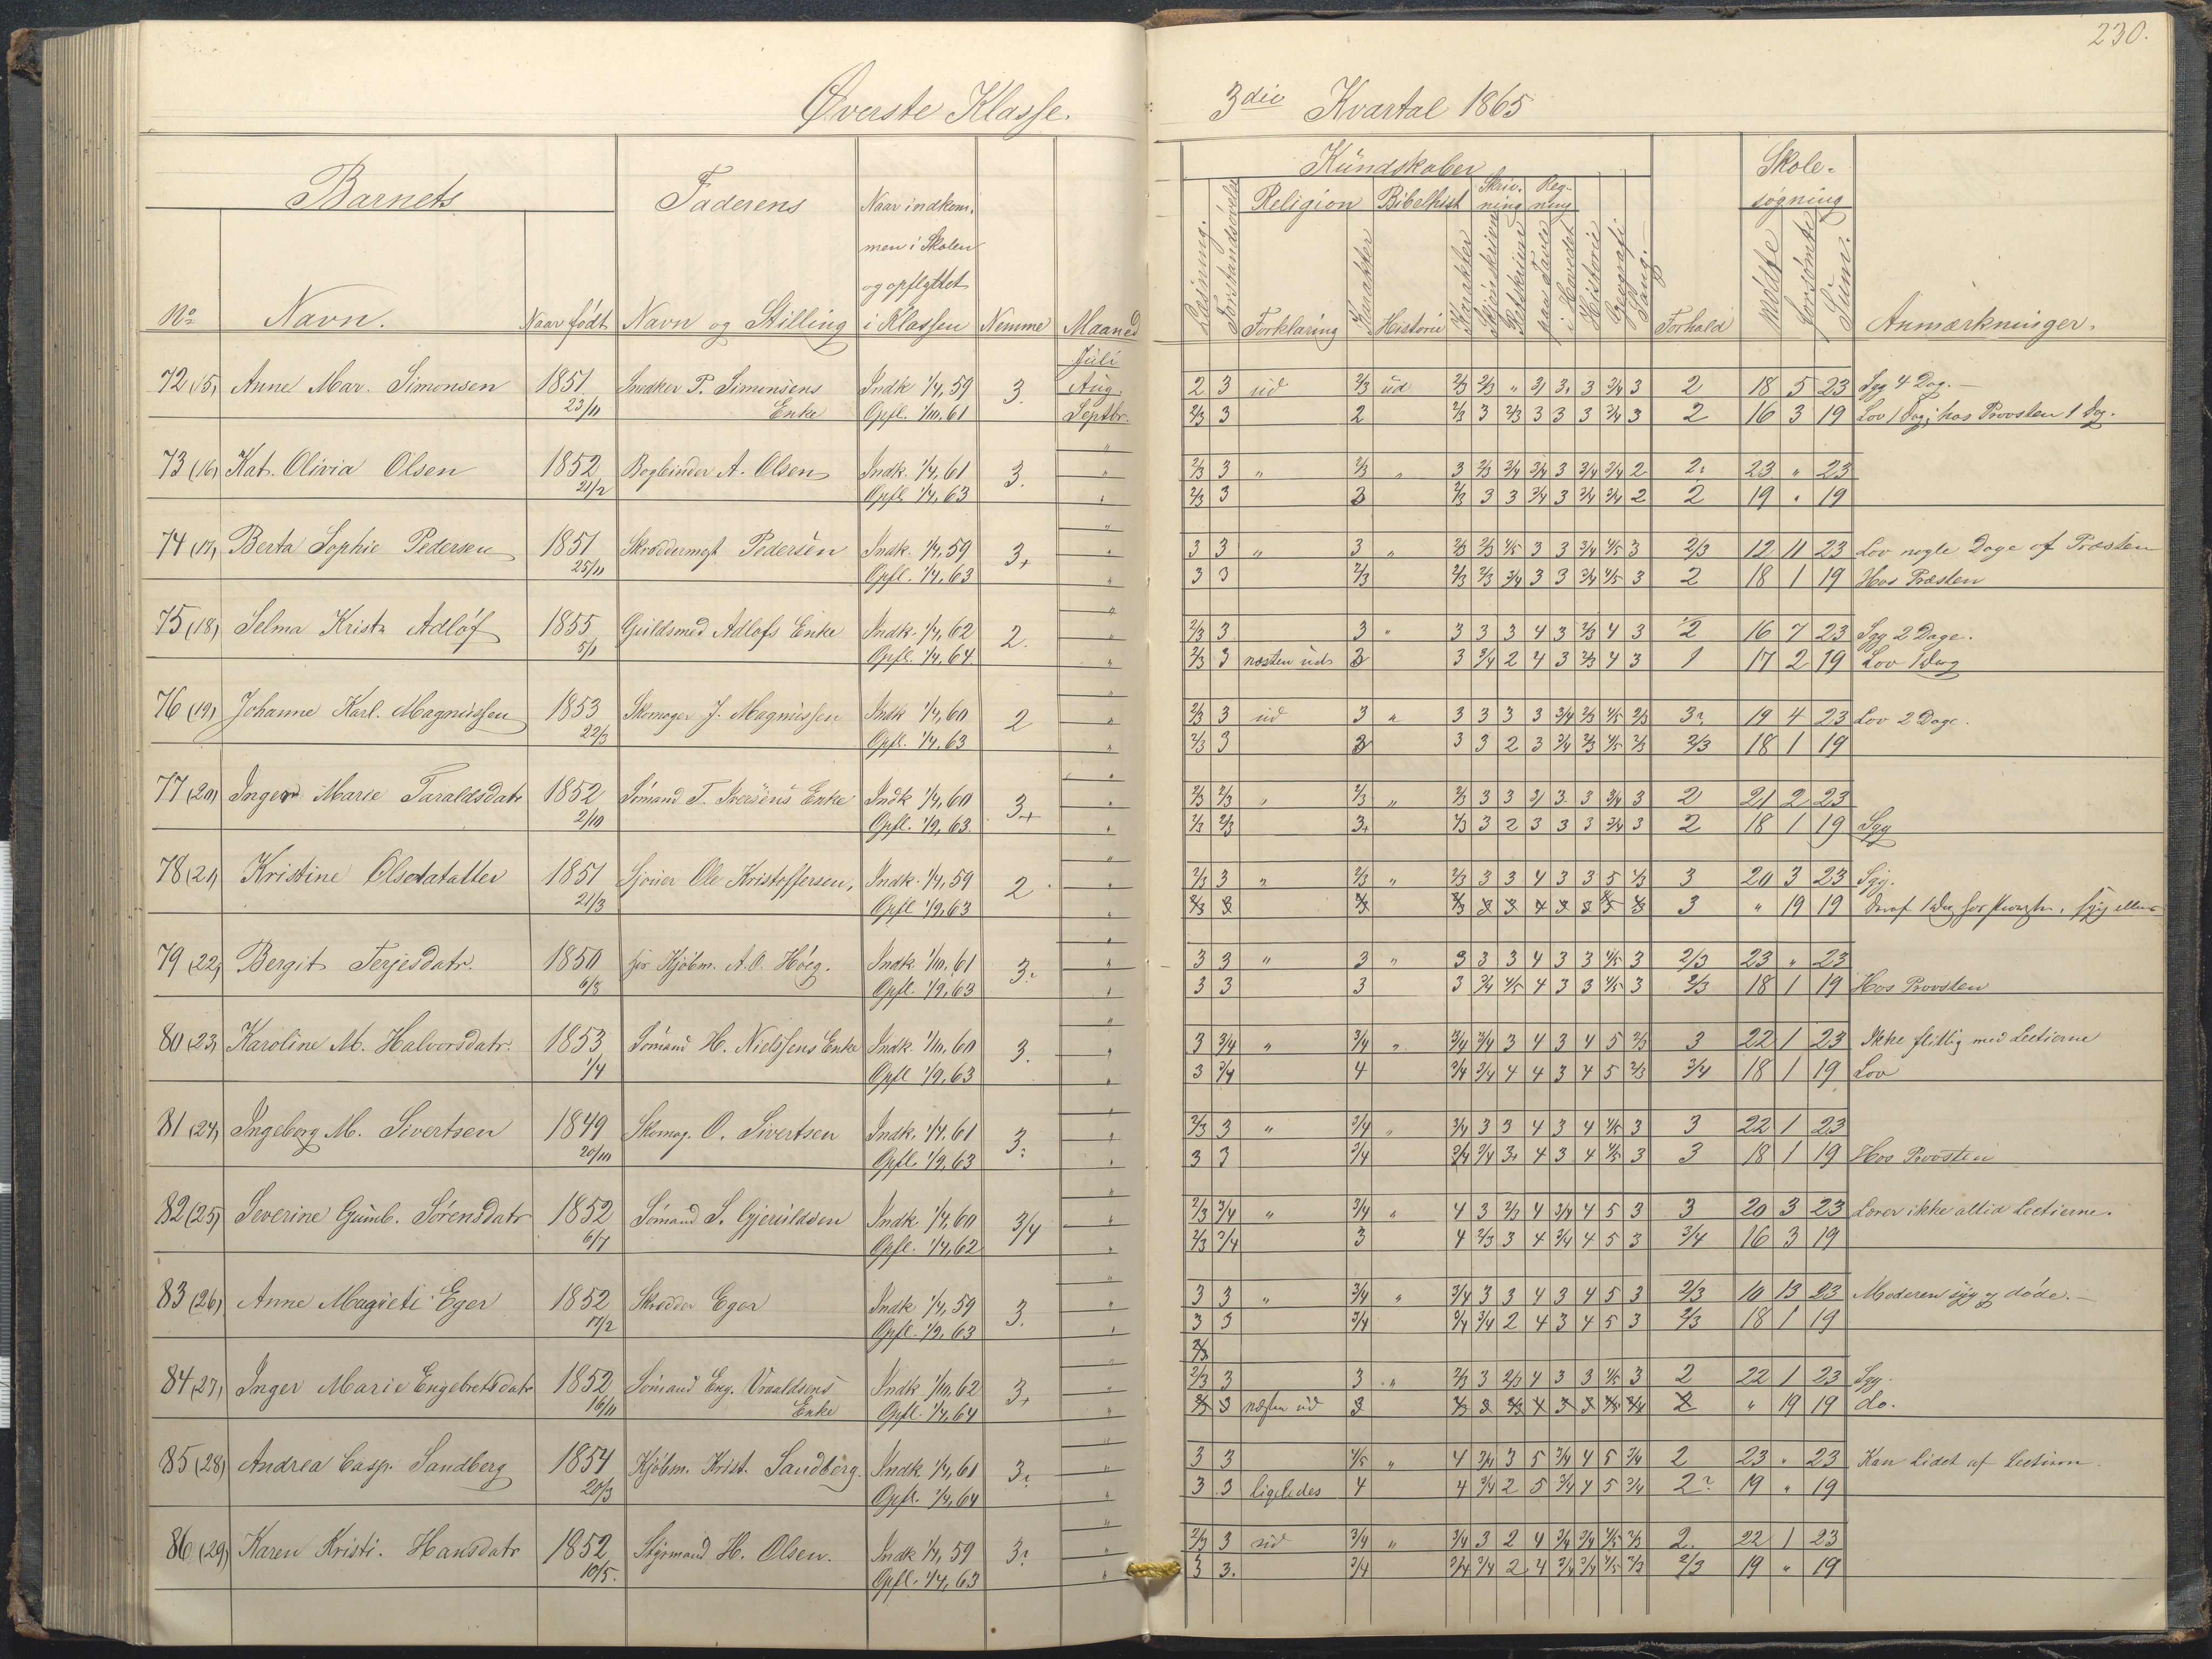 230.
Øverste Klasse. 3die Kvartal 1865
Barnets Faderens Naar indkom- Kundskaber Skole-
men i Skolen Religion Bibelhist Skriv- Reg- søgning
og opflyttet ning ning
No Navn. Naar født Navn og Stilling i Klassen Nemme Maaned Læsning. Forstandsøvelse Forklaring Karakter Historie Karakter Skjönskrivn Retskrivn paa Tavle i Hovedet Historie Geografi Sang. Forhold mödte forsömte Sum. Anmærkninger.
Juli
72 (15) Anne Mar. Simonsen 1851 Snedker P. Simonsens Indk 1/4, 59 3. Aug. 2 3 ud 2/3 ud 2/3 2/3 " 3/ 3. 3 3/4 3 2 18 5 23 Syg 4 Dag.
23/11 Enke Opfl. 1/10, 61 Septbr. 2/3 3 2 2/3 3 2/3 3 3 3 3/4 3 2 16 3 19 Lov 1 Dag; hos Provsten 1 Dag.
73 (16) Kat. Olivia Olsen 1852 Bogbinder A. Olsen Indk. 1/4, 61 3. " 2/3 3 " 2/3 " 3 2/3 3/4 3/4 3 3/4 3/4 2 2. 23 " 23
21/2 Opfl 1/4, 63 " 2/3 3 3 2/3 3 3 3/4 3 3/4 3/4 2 2 19 " 19
74 (17) Berta Sophie Pedersen 1851 Skræddermgt Pedersen Indk. 1/4, 59 3+ " 3 3 " 3 " 2/3 2/3 4/5 3 3 3/4 4/5 3 2/3 12 11 23 Lov nogle Dage af Præsten
25/11 Opfl. 1/4, 63 " 3 3 2/3 2/3 2/3 3/4 3 3 3/4 4/5 3 2 18 1 19 Hos Præsten
75 (18) Selma Krista Adlöf 1855 Guldsmed Adlofs Enke Indk. 1/4, 62 2. " 2/3 3 3 " 3 3 3 4 3 2/3 4 3 2 16 7 23 Syg 2 Dage.
5/1 Opfl. 1/4, 64 " 2/3 3 næsten ud 3 3 3/4 2 4 3 2/3 4 3 1 17 2 19 Lov 1 Dag
76 (19) Johanne Karl. Magnussen 1853 Skomager J. Magnussen Indk 1/4, 60 2 " 2/3 3 ud 3 " 3 3 3 3 3/4 2/3 4/5 2/3 3? 19 4 23 Lov 2 Dage.
22/3 Opfl. 1/4, 63 " 2/3 3 3 3 3 2 3 3/4 2/3 4/5 2/3 2/3 18 1 19
77 (20) Inger Marie Taraldsdatr 1852 Sömand T. Iversens Enke Indk 1/4, 60 3+ " 2/3 2/3 " 2/3 " 2/3 3 3 3/ 3. 3 3/4 3 2 21 2 23
2/10 Opfl. 1/9, 63. " 2/3 2/3 3+ 2/3 3 2 3 3 3 3/4 3 2 18 1 19 Syg
78 (21) Kristine Olsdatatter 1851 Ole Kristoffersen, Indk. 1/4, 59 2 " 2/3 3 " 2/3 " 2/3 3 3 4 3 3 5 2/3 3 20 3 23 Syg.
21/3 Opfl 1/9, 63 " 2/3 3 2/3 3 3 4 3 3 3 " 19 19
79 (22) Bergit Terjesdatr. 1850 hos Kjöbm. A. O. Höeg. Indk. 1/10, 61 3? " 3 3 " 3 " 3 3 3 4 3 3 4/5 3 2/3 23 " 23
6/8 Opfl. 1/9, 63 " 3 3 3 3 3/4 4/5 4 3 3 4/5 3 2/3 18 1 19 Hos Provsten
80 (23) Karoline M. Halvorsdatr. 1853 Sömand H. Nielssens Enke Indk. 1/10, 60 3. " 3 3/4 " 3/4 " 3/4 3/4 3 4 3 4 5 2/3 3 22 1 23 Ikke flittig med Lectierne
1/4 Opfl 1/9, 63 " 3 3/4 4 3/4 3/4 4 4 3 4 5 2/3 3/4 18 1 19 Lov
81 (24) Ingeborg M. Sivertsen 1849 Skomag. O. Sivertsen Indk, 1/4, 61 3? " 2/3 3 " 3/4 " 3/4 3 3 4 3 4 4/5 3 3 22 1 23
20/10 Opfl. 1/9, 63 " 3 3 3/4 3/4 3/4 3+ 4 3 4 4/5 3 3 18 1 19 Hos Provsten
82 (25) Severine Gunb. Sörensdatr 1852 Sömand S. Gjeruldsen Indk. 1/4, 60 3/4 " 2/3 3/4 " 3/4 " 4 3 2/3 4 3/4 4 5 3 3 20 3 23 Lærer ikke altid Lectierne.
6/7 Opfl. 1/4, 62 " 2/3 3/4 3 4 2/3 3 4 3/4 4 5 3 3/4 16 3 19
83 (26) Anne Magrete Eger 1852 Skrædder Eger Indk 1/4, 59 3. " 3 3 " 3/4 " 3/4 3 3 4 3 4 5 3 2/3 10 13 23 Moderen syg og döde.
17/2 Opfl. 1/9, 63 " 3 3 3/4 3/4 3/4 2 4 3 4 5 3 2/3 18 1 19
84 (27) Inger Marie Engebretsdatr 1852 Sömand Eng. Vraaldsens Indk 1/10, 62 3+ " 2/3 3 3 " 2/3 3 2/3 4 3 3 4/5 3 2 22 1 23 Syg.
16/11 Enke Opfl. 1/4, 64 " 3 næsten ud 3 2/3 3 2/3 4 3 3 2 " 19 19 do.
85 (28) Andrea Casp. Sandberg 1854 Kjöbm. Krist. Sandberg. Indk 1/4, 61 3? " 3 3 4/5 " 4 3/4 3 5 3/4 4 5 3/4 2 23 " 23 Kan Lidet af Lectien.
20/3 Opfl. 1/4, 64 " 3 3 ligeledes 4 4 3/4 2 5 3/4 4 5 3/4 2? 19 " 19
86 (29) Karen Kristi. Hansdatr 1852 Styrmand H. Olsen. Indk 1/4, 59 3? " 2/3 3 ud 3/4 " 3/4 3 2 4 3/4 3/4 4/5 2/3 2. 22 1 23
10/5. Opfl. 1/4, 63 " 3 3. 3/4 3/4 3/4 2 4 3/4 3/4 4/5 2/3 2/3 19 " 19